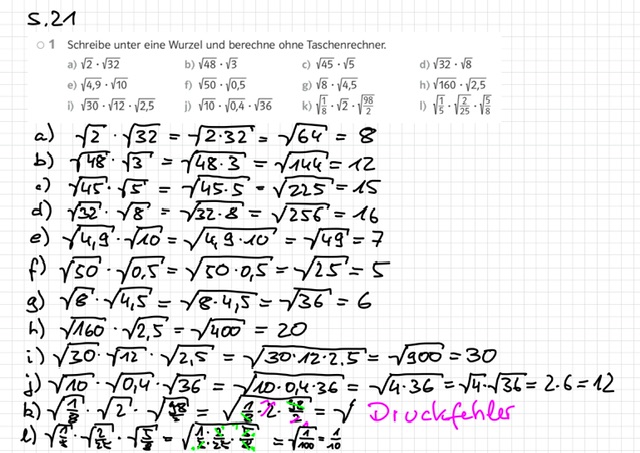 S. 21
1 Schreibe unter eine Wurzel und berechne ohne Taschenrechner.
a) √2 · √32 b) √48 · √3 c) √45 · √5 d) √32 · √8
e) √4,9 · √10 f) √50 · √0,5 g) √8 · √4,5 h) √160 · √2,5
i) √30 · √12 · √2,5 j) √10 · √0,4 · √36 k) √(1/8) · √2 · √(98/2) l) √(1/5) · √(2/25) · √(5/8)
a) √2 · √32 = √(2·32) = √64 = 8
b) √48 · √3 = √(48·3) = √144 = 12
c) √45 · √5 = √(45·5) = √225 = 15
d) √32 · √8 = √(32·8) = √256 = 16
e) √4,9 · √10 = √(4,9·10) = √49 = 7
f) √50 · √0,5 = √(50·0,5) = √25 = 5
g) √8 · √4,5 = √(8·4,5) = √36 = 6
h) √160 · √2,5 = √400 = 20
i) √30 · √12 · √2,5 = √(30·12·2,5) = √900 = 30
j) √10 · √0,4 · √36 = √(10·0,4·36) = √(4·36) = √4 · √36 = 2·6 = 12
k) √(1/8) · √2 · √(98/2) = √(1/8 · 2 · 98/2) = √ Druckfehler
l) √(1/5) · √(2/25) · √(5/8) = √(1/5 · 2/25 · 5/8) = √(1/100) = 1/10